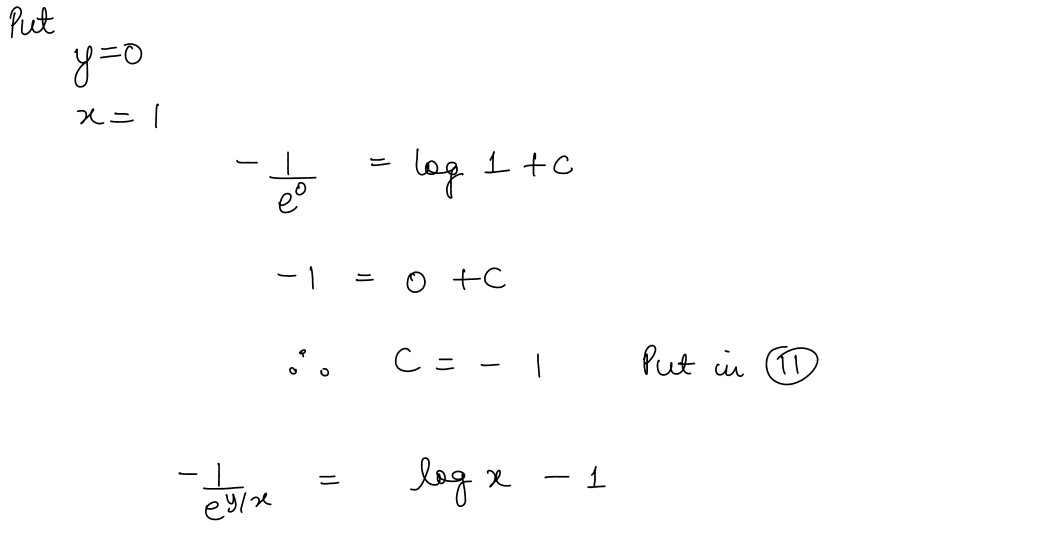 Put
y=0
x=1
-1/e^0 = log 1 + C
-1 = 0 + C
∴ C = -1 Put in (II)
-1/e^{y/x} = log x - 1